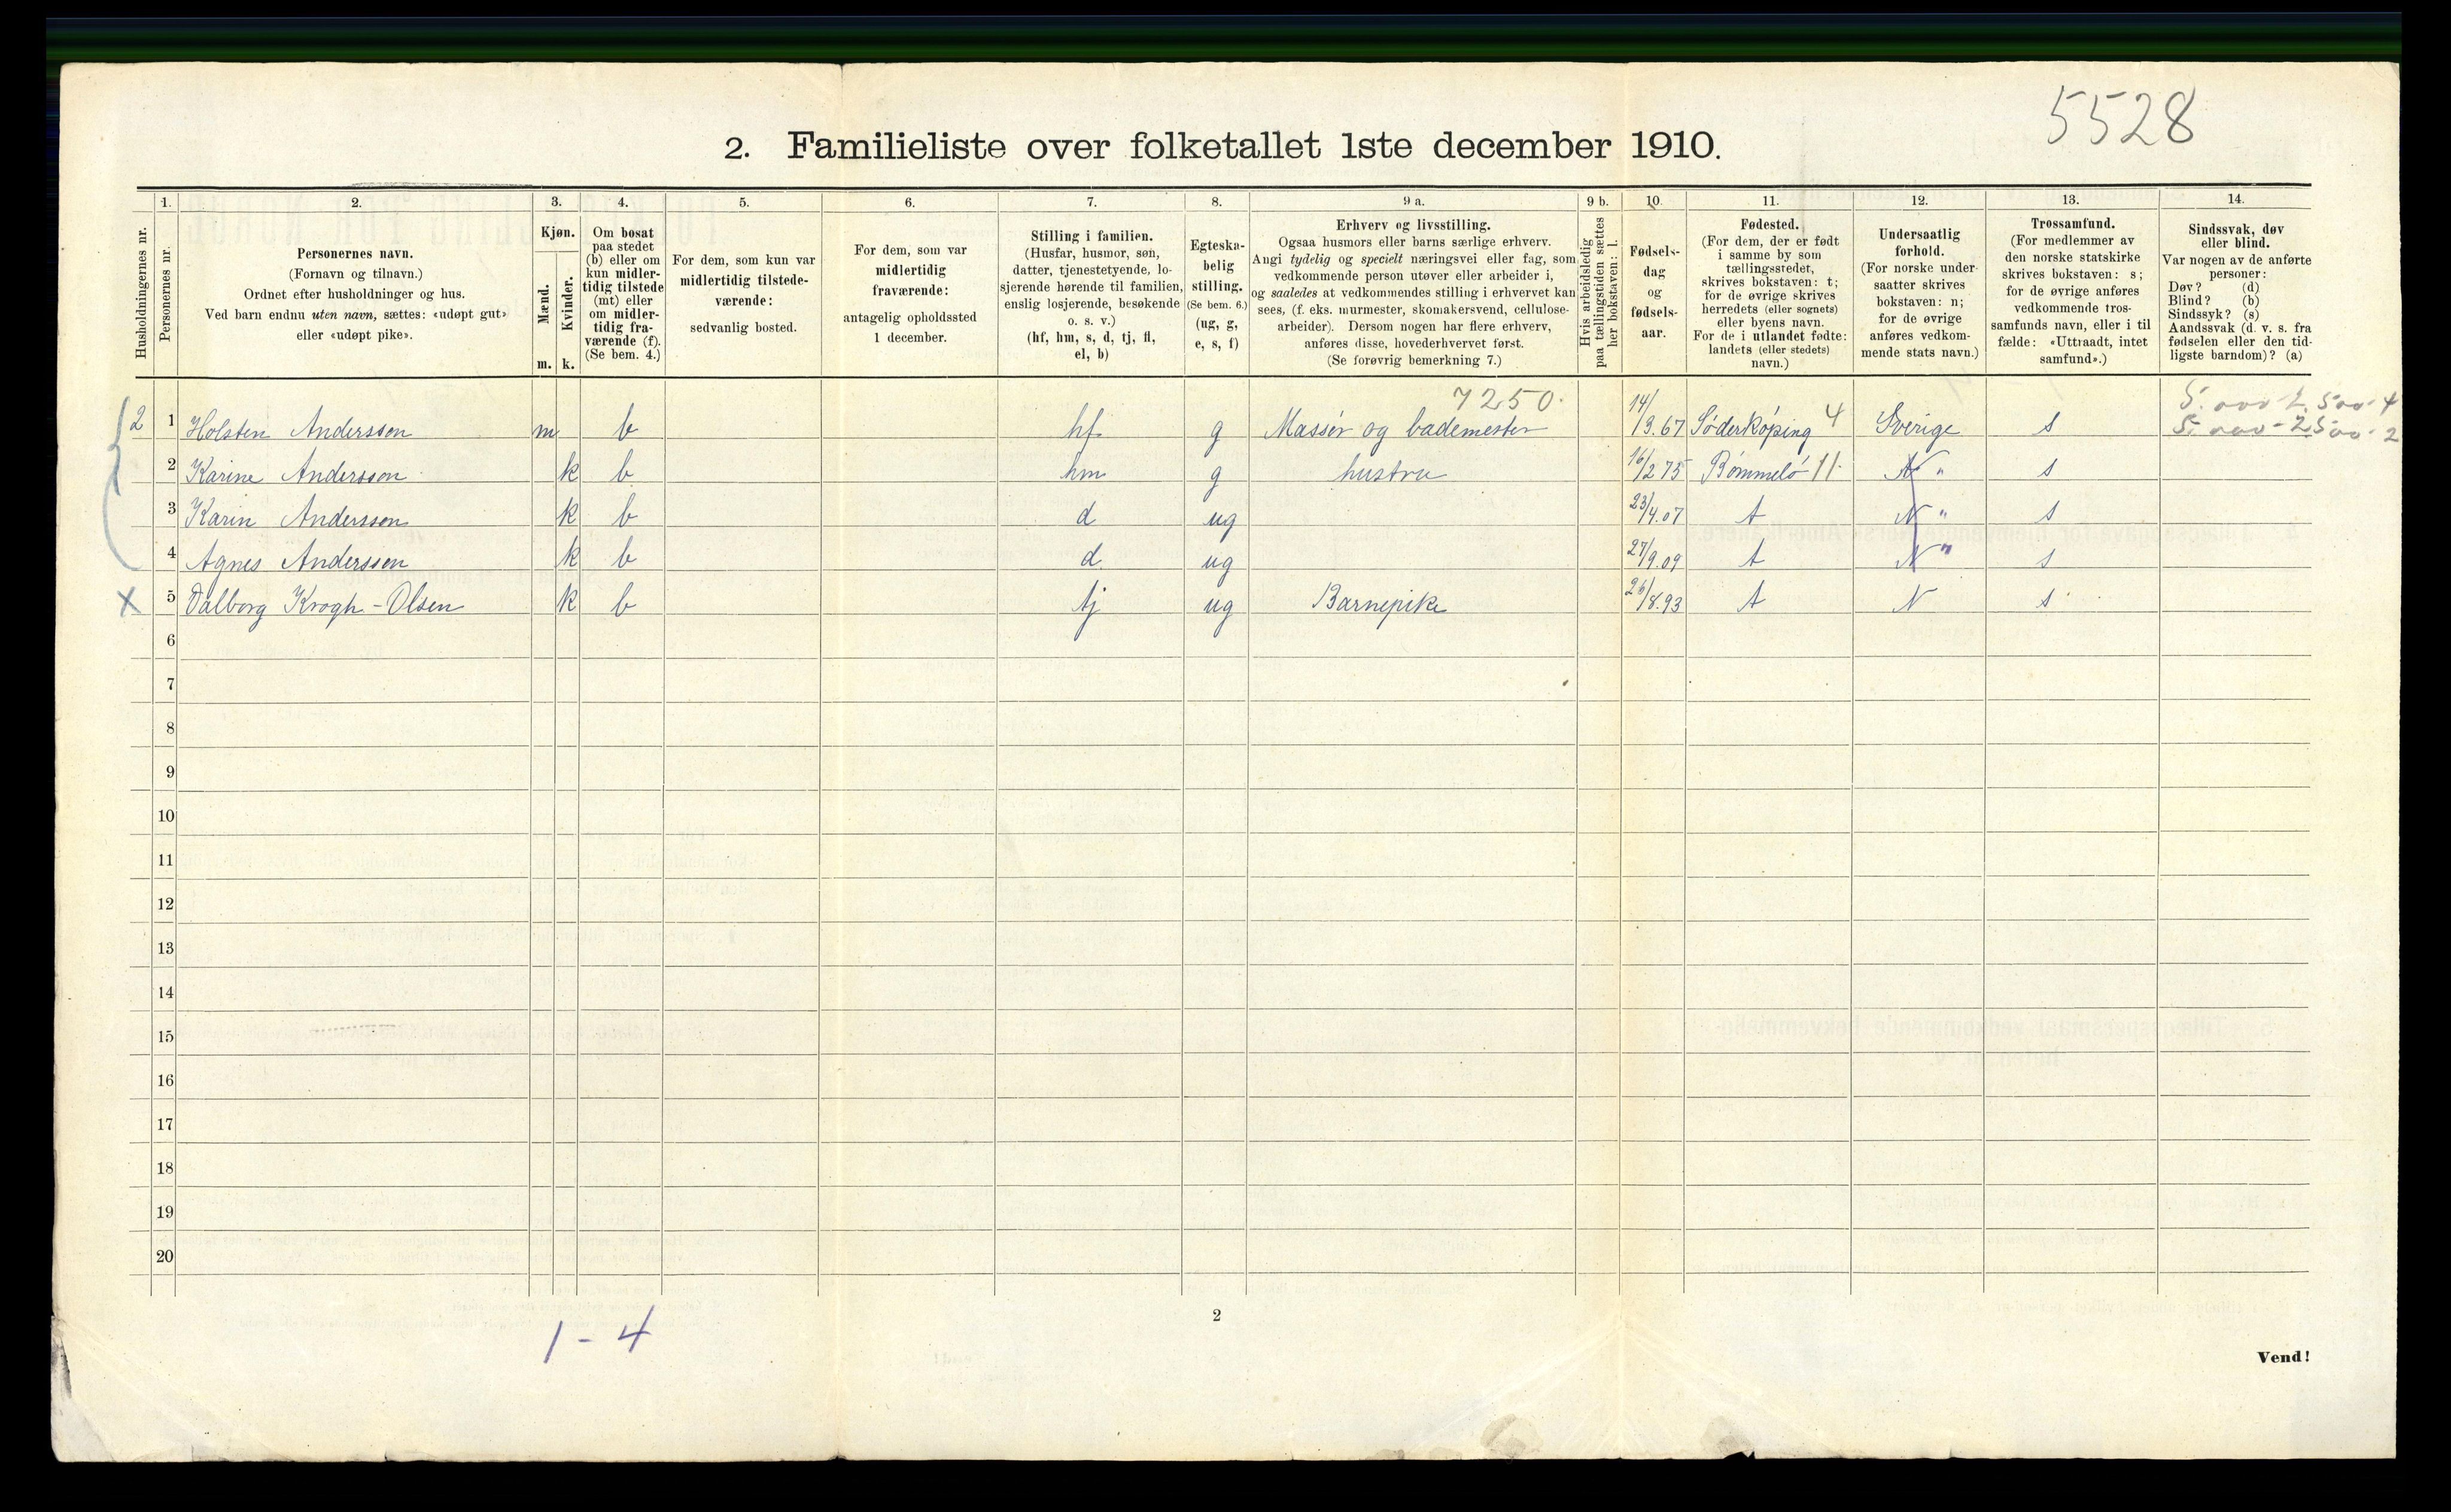 5528
2. Familieliste over folketallet 1ste december 1910.
Husholdningernes nr.
1.
Personernes nr.
2.
Personernes navn.
(Fornavn og tilnavn.)
Ordnet efter husholdninger og hus.
Ved barn endnu uten navn, sættes: «udøpt gut»
eller «udøpt pike».
3.
Kjøn.
Mænd.
Kvinder.
m. k.
4.
Om bosat
paa stedet
(b) eller om
kun midler-
tidig tilstede
(mt) eller
om midler-
tidig fra-
værende (f).
(Se bem. 4.)
5.
For dem, som kun var
midlertidig tilstede-
værende:
sedvanlig bosted.
6.
For dem, som var
midlertidig
fraværende:
antagelig opholdssted
1 december.
7.
Stilling i familien.
(Husfar, husmor, søn,
datter, tjenestetyende, lo-
sjerende hørende til familien,
enslig losjerende, besøkende
o. s. v.)
(hf, hm, s, d, tj, fl,
el, b)
8.
Egteska-
belig
stilling.
(Se bem. 6.)
(ug, g,
e, s, f)
9 a.
Erhverv og livsstilling.
Ogsaa husmors eller barns særlige erhverv.
Angi tydelig og specielt næringsvei eller fag, som
vedkommende person utøver eller arbeider i,
og saaledes at vedkommendes stilling i erhvervet kan
sees, (f. eks. murmester, skomakersvend, cellulose-
arbeider). Dersom nogen har flere erhverv,
anføres disse, hovederhvervet først.
(Se forøvrig bemerkning 7.)
9 b.
Hvis arbeidsledig
paa tællingstiden sættes
her bokstaven: l.
10.
Fødsels-
dag
og
fødsels-
aar.
11.
Fødested.
(For dem, der er født
i samme by som
tællingsstedet,
skrives bokstaven: t;
for de øvrige skrives
herredets (eller sognets)
eller byens navn.
For de i utlandet fødte:
landets (eller stedets)
navn.)
12.
Undersaatlig
forhold.
(For norske under-
saatter skrives
bokstaven: n;
for de øvrige
anføres vedkom-
mende stats navn.)
13.
Trossamfund.
(For medlemmer av
den norske statskirke
skrives bokstaven: s;
for de øvrige anføres
vedkommende tros-
samfunds navn, eller i til
fælde: «Uttraadt, intet
samfund».)
14.
Sindssvak, døv
eller blind.
Var nogen av de anførte
personer:
Døv? (d)
Blind? (b)
Sindssyk? (s)
Aandssvak (d. v. s. fra
fødselen eller den tid-
ligste barndom)? (a)
7250.
2 1 Holsten Andersson m b hf g Massör og bademester 14/3.67 Söderköping 4 Sverige s
2 Karine Andersson k b hm g hustru 16/2 75 Bömmelö 11 N " s
3 Karin Andersson k b d ug 23/4.07 t N " s
4 Agnes Andersson k b d. ug 27/9.09 t N " s
x 5 Valborg Krogh-Olsen k b tj ug Barnepike 26/8.93 t N s
6
7
8
9
10
11
12
13
14
15
16
17
18
19
20
2
1-4
Vend!